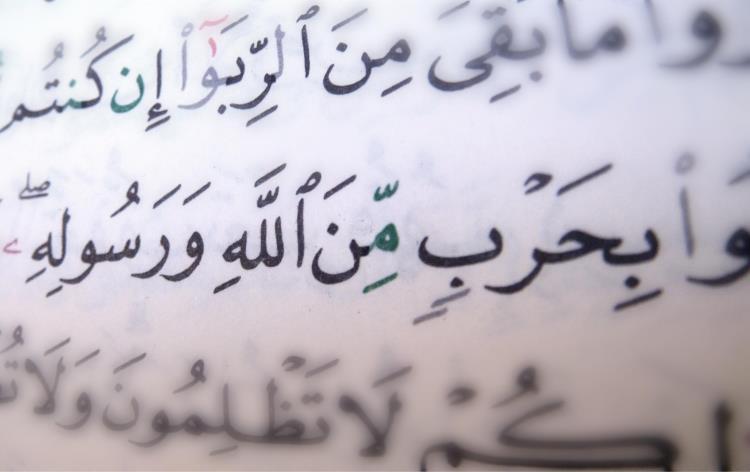 مَا بَقِىَ مِنَ ٱلرِّبَوٰٓا۟ إِن كُنتُم
بِحَرْبٍ مِّنَ ٱللَّهِ وَرَسُولِهِۦ ۖ
لَا تَظْلِمُونَ وَلَا